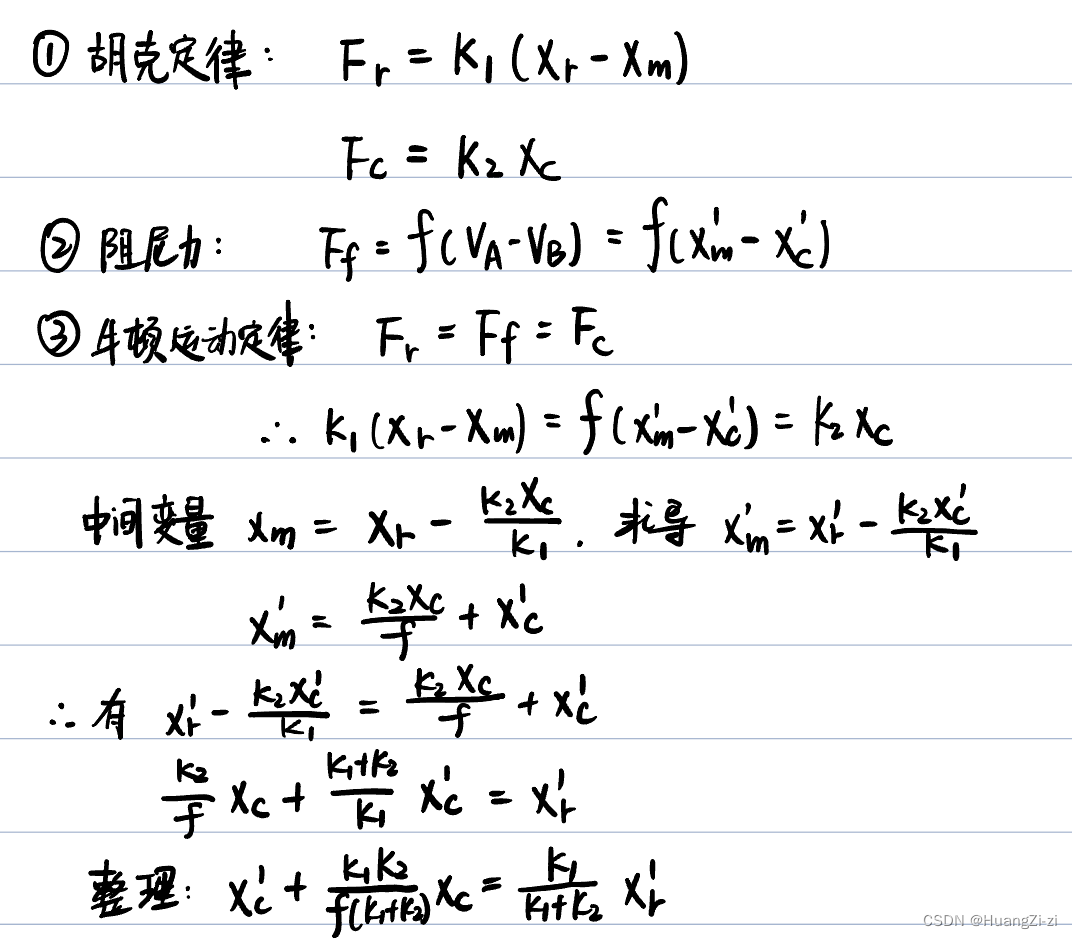 ① 胡克定律: Fr = K1 (Xr - Xm)
Fc = K2 Xc
② 阻尼力: Ff = f(VA - VB) = f(Xm' - Xc')
③ 牛顿运动定律: Fr = Ff = Fc
∴ K1 (Xr - Xm) = f(Xm' - Xc') = K2 Xc
中间变量 Xm = Xr - K2Xc/K1 . 求导 Xm' = Xr' - K2Xc'/K1
Xm' = K2Xc/f + Xc'
∴ 有 Xr' - K2Xc'/K1 = K2Xc/f + Xc'
K2/f Xc + (K1+K2)/K1 Xc' = Xr'
整理: Xc' + K1K2/(f(K1+K2)) Xc = K1/(K1+K2) Xr'
CSDN @HuangZi-zi